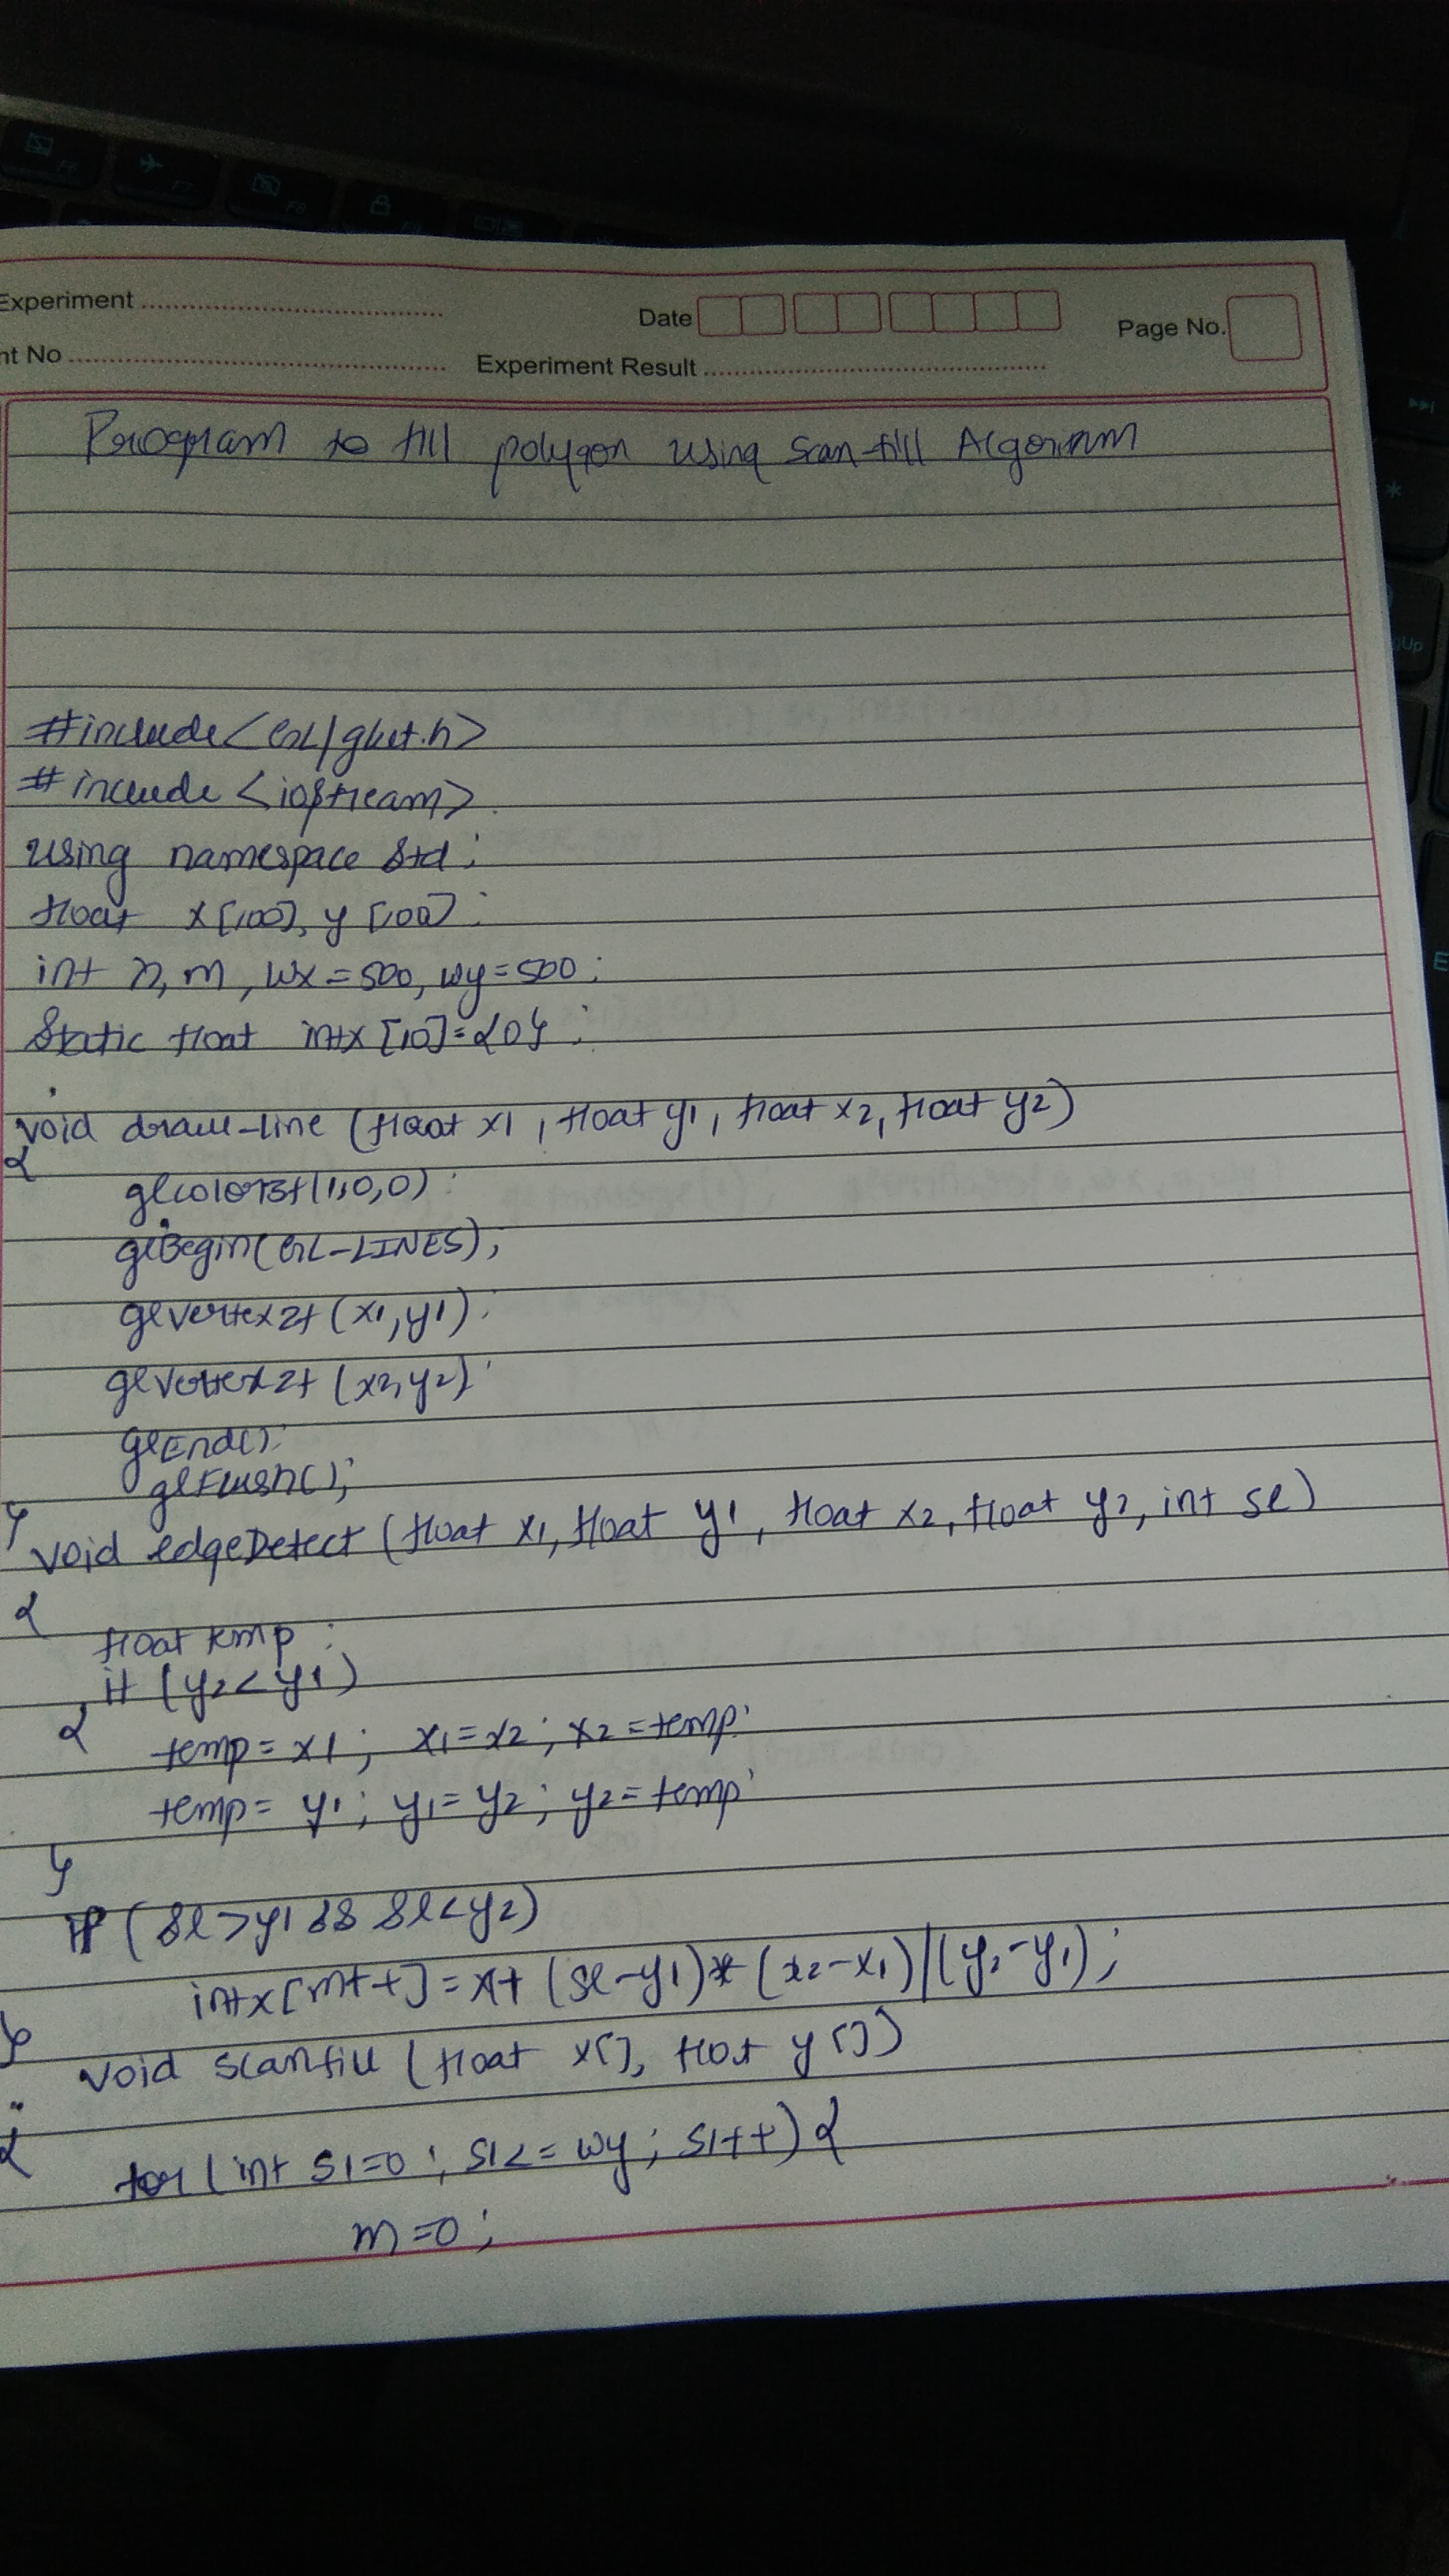 Experiment
Date
Page No.
nt No
Experiment Result
Program to fill polygon using scan-fill Algorithm
#include<GL/glut.h>
#include<iostream>
using namespace std;
float x[100], y[100];
int n, m, wx=500, wy=500;
static float intx[10]={0};
void draw-line (float x1, float y1, float x2, float y2)
{
glColor3f(1,0,0);
glBegin(GL-LINES);
glVertex2f(x1,y1);
glVertex2f(x2,y2);
glEnd();
glFlush();
}
void edgeDetect (float x1, float y1, float x2, float y2, int sl)
{
float temp;
if (y2<y1)
{
temp=x1; x1=x2; x2=temp;
temp=y1; y1=y2; y2=temp;
}
if (sl>y1 && sl<y2)
intx[m++]=x+ (sl-y1)*(x2-x1)/(y2-y1);
}
void scanfill (float x[], flot y[])
{
for (int s1=0; s1<=wy; s1++) {
m=0;